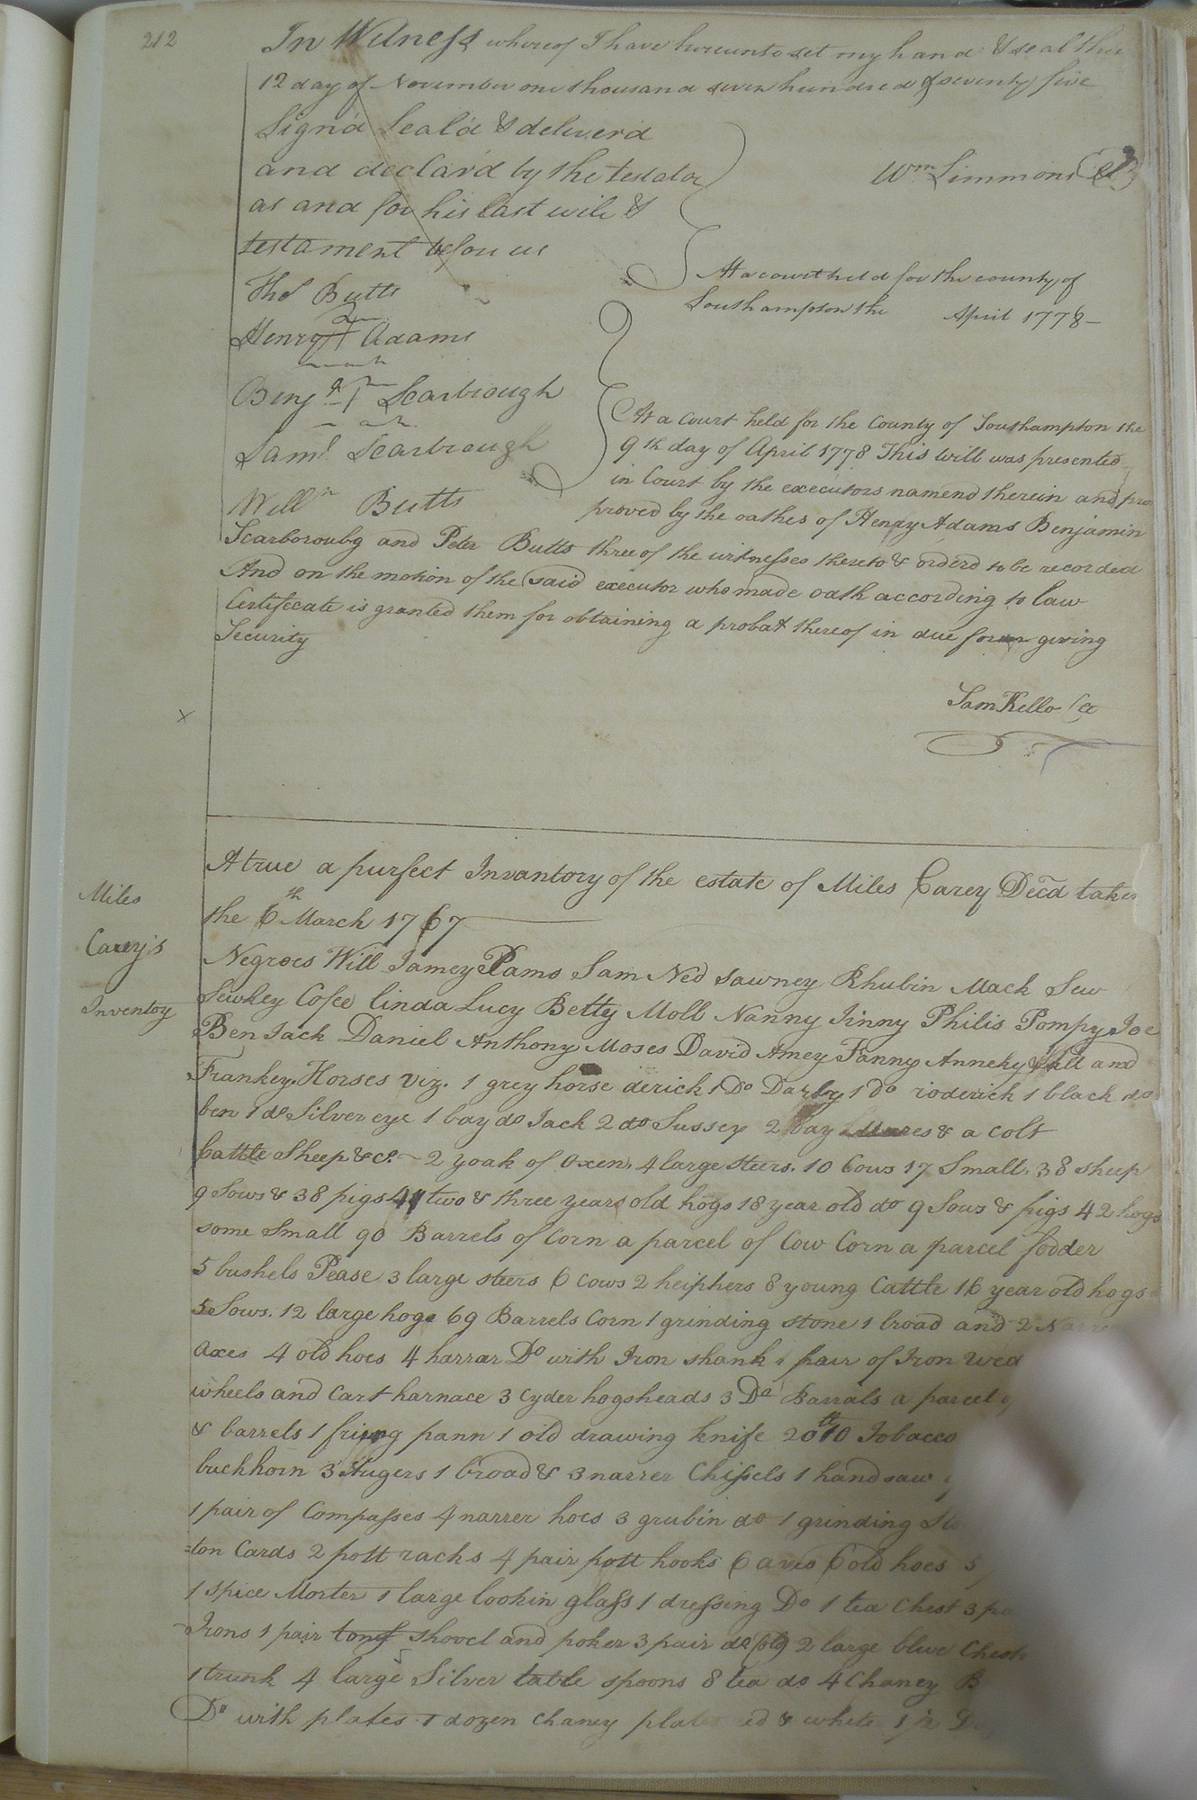 212
In Witness whereof I have hereunto set my hand & seal this
12 day of November one thousand seven hundred & seventy five
Sign'd Seal'd & deliver'd
and declar'd by the testator
as and for his last will &
testament before us
Wm Simmons
Thos Butts
Henry Adams
Benj Scarbrough
Saml Scarbrough
Willm Butts
At a court held for the county of
Southampton the April 1778
At a Court held for the County of Southampton the
9th day of April 1778 This will was presented
in Court by the executors namend therein and pro
proved by the oathes of Henry Adams Benjamin
Scarboroubg and Peter Butts three of the witnesses thereto & orderd to be recorded
And on the motion of the said executor who made oath according to law
Certifecate is granted them for obtaining a probat thereof in due form giving
Security
Sam Kello
x
Miles
Carey's
Inventory
A true a purfect Invantory of the estate of Miles Carey Decd taken
the 6th March 1767
Negroes Will Jamey Pamo Sam Ned Sawney Rhubin Mack Sew
Sewkey Cofee Linda Lucy Betty Moll Nanny Jinny Philis Pompy Joe
Ben Jack Daniel Anthony Moses David Amey Fanny Anneky and
Frankey. Horses viz. 1 grey horse derick 1 Do Darby 1 do roderick 1 black do
ben 1 do Silver eye 1 bay do Jack 2 do Sussey 2 bay Mares & a Colt
Cattle Sheep &c. 2 yoak of Oxen. 4 large steers. 10 Cows 17 Small. 38 sheep
9 Sows & 38 pigs 41 two & three years old hogs 18 year old do 9 Sows & pigs 42 hogs
some small 90 Barrels of Corn a parcel of Cow Corn a parcel fodder
5 bushels Pease 3 large steers 6 cows 2 heiphers 8 young Cattle 16 year old hogs
5 Sows. 12 large hogs 69 Barrels Corn 1 grinding stone 1 broad and 2
axes 4 old hoes 4 harrar Do with Iron shank 1 pair of Iron Wed
wheels and Cart harnace 3 Cyder hogsheads 3 Do Barrals a parcel
& barrels 1 friing pann 1 old drawing knife 20 Tobacco
buckhorn 3 Augers 1 broad & 3 narrer Chissels 1 hand saw
1 pair of Compasses 4 narrer hoes 3 grubin do 1 grinding
ton Cards 2 pott rachs 4 pair pott hooks 6 axes 6 old hoes 5
1 spice Morter 1 large lookin glass 1 dressing Do 1 tea Chest 3
Irons 1 pair tongs shovel and poker 3 pair do old 2 large blue
1 trunk 4 large Silver table spoons 8 tea do 4 Chaney
Do with plates 1 dozen Chaney & white